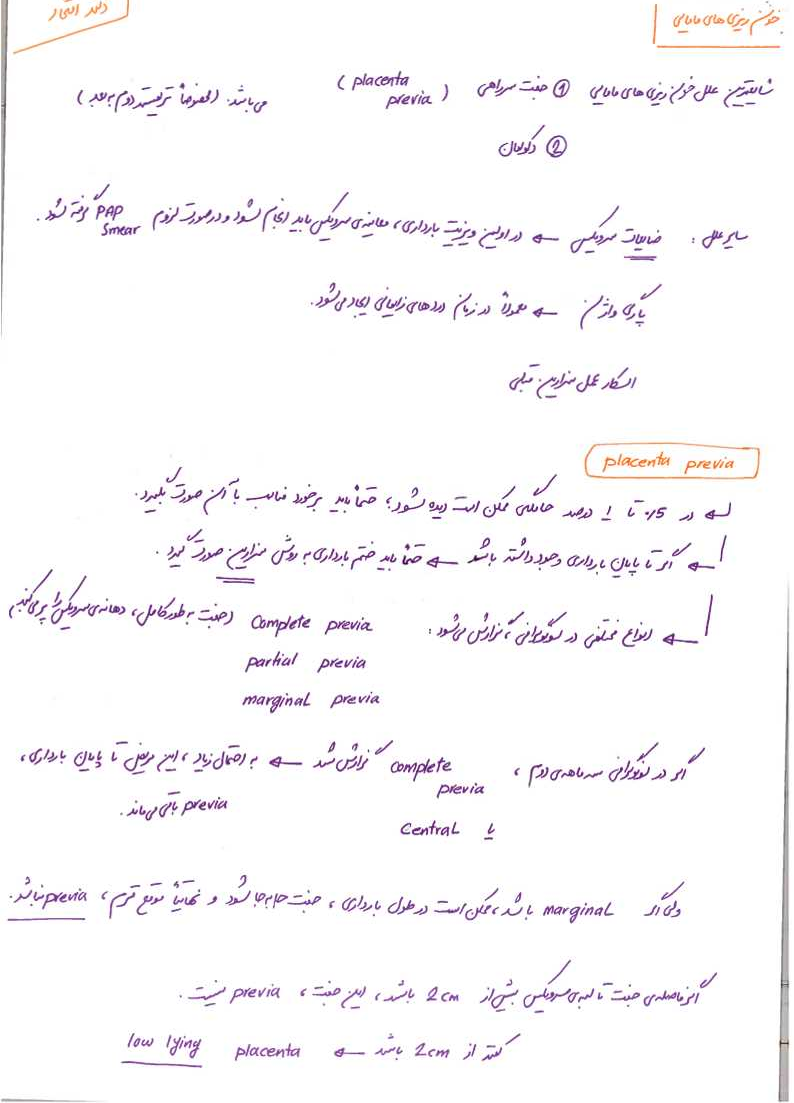 خون ریزی های مامایی
شایعترین علل خون ریزی های مامایی ① جفت سرراهی (placenta previa) می باشد. (خصوصاً تریمستر دوم به بعد)
② دکولمان
سایر علل : ضایعات سرویکس ← در اولین ویزیت بارداری، معاینه‌ی سرویکس باید انجام شود و در صورت لزوم PAP Smear گرفته شود.
پارگی واژن ← معمولاً در زمان دردهای زایمانی ایجاد می شود.
اسکار عمل سزارین قبلی
placenta previa
← در ۰/۵ تا ۱ درصد حاملگی ممکن است دیده شود؛ حتماً باید برخورد مناسب با آن صورت بگیرد.
← اگر تا پایان بارداری وجود داشته باشد ← حتماً باید ختم بارداری به روش سزارین صورت گیرد.
← انواع مختلفی در سونوگرافی گزارش می شود: Complete previa (جفت به طور کامل، دهانه‌ی سرویکس را پر می کند)
partial previa
marginal previa
اگر در سونوگرافی سه ماهه‌ی دوم، complete previa گزارش شد ← به احتمال زیاد، این مریض تا پایان بارداری،
previa باقی می ماند.
یا Central
ولی اگر marginal باشد، ممکن است در طول بارداری، جفت جابه جا شود و نهایتاً موقع ترم، previa نباشد.
اگر فاصله‌ی جفت تا لبه‌ی سرویکس بیش از 2cm باشد، این جفت، previa نیست.
کمتر از 2cm باشد ← placenta low lying